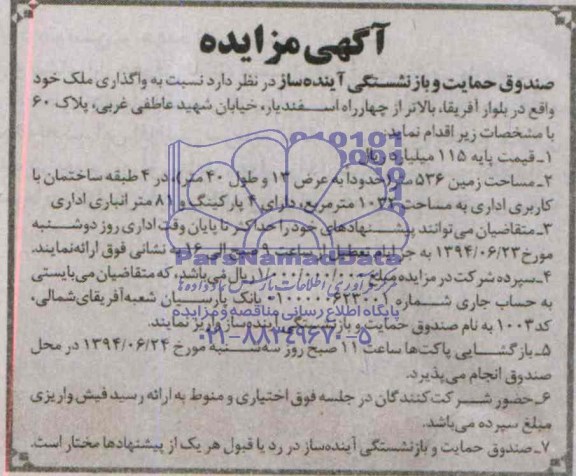 آگهی مزایده
صندوق حمایت و بازنشستگی آینده‌ساز در نظر دارد نسبت به واگذاری ملک خود
واقع در بلوار آفریقا، بالاتر از چهارراه اسفندیار، خیابان شهید عاطفی غربی، پلاک ۶۰
با مشخصات زیر اقدام نماید:
۱ـ قیمت پایه ۱۱۵ میلیارد ریال
۲ـ مساحت زمین ۵۳۶ متر (حدوداً به عرض ۱۳ و طول ۴۰ متر)، در ۴ طبقه ساختمان با
کاربری اداری به مساحت ۱۰۳۲ مترمربع، دارای ۴ پارکینگ و ۸۱ متر انباری اداری
۳ـ متقاضیان می‌توانند پیشنهادهای خود را حداکثر تا پایان وقت اداری روز دوشنبه
مورخ ۱۳۹۴/۰۶/۲۳ به جز ایام تعطیل از ساعت ۹ صبح الی ۱۶ به نشانی فوق ارائه نمایند.
۴ـ سپرده شرکت در مزایده مبلغ ریال می‌باشد، که متقاضیان می‌بایستی
به حساب جاری شماره بانک پارسیان شعبه آفریقای شمالی،
کد ۱۰۰۳ به نام صندوق حمایت و بازنشستگی آینده‌ساز واریز نمایند.
۵ـ بازگشایی پاکت‌ها ساعت ۱۱ صبح روز سه‌شنبه مورخ ۱۳۹۴/۰۶/۲۴ در محل
صندوق انجام می‌پذیرد.
۶ـ حضور شرکت‌کنندگان در جلسه فوق اختیاری و منوط به ارائه رسید فیش واریزی
مبلغ سپرده می‌باشد.
۷ـ صندوق حمایت و بازنشستگی آینده‌ساز در رد یا قبول هر یک از پیشنهادها مختار است.
ParsNamadData
پایگاه اطلاع رسانی مناقصه و مزایده
۰۲۱-۸۸۳۴۹۶۷۰-۵